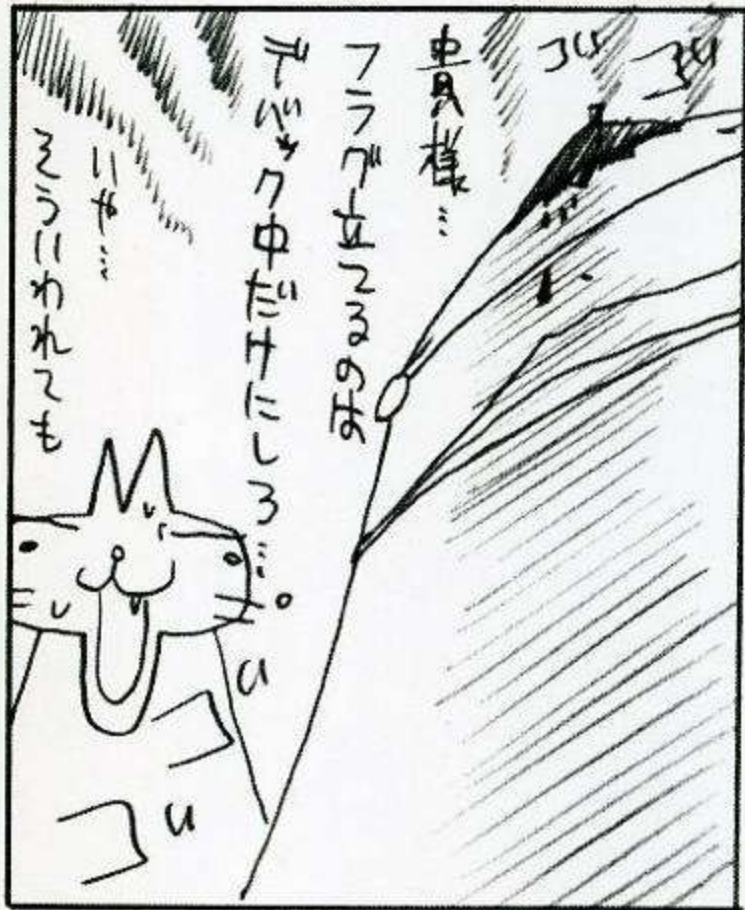 ゴゴ
貴様…
フラグ立てるのは
デバック中だけにしろ…
いや…
そういわれても
ゴゴ